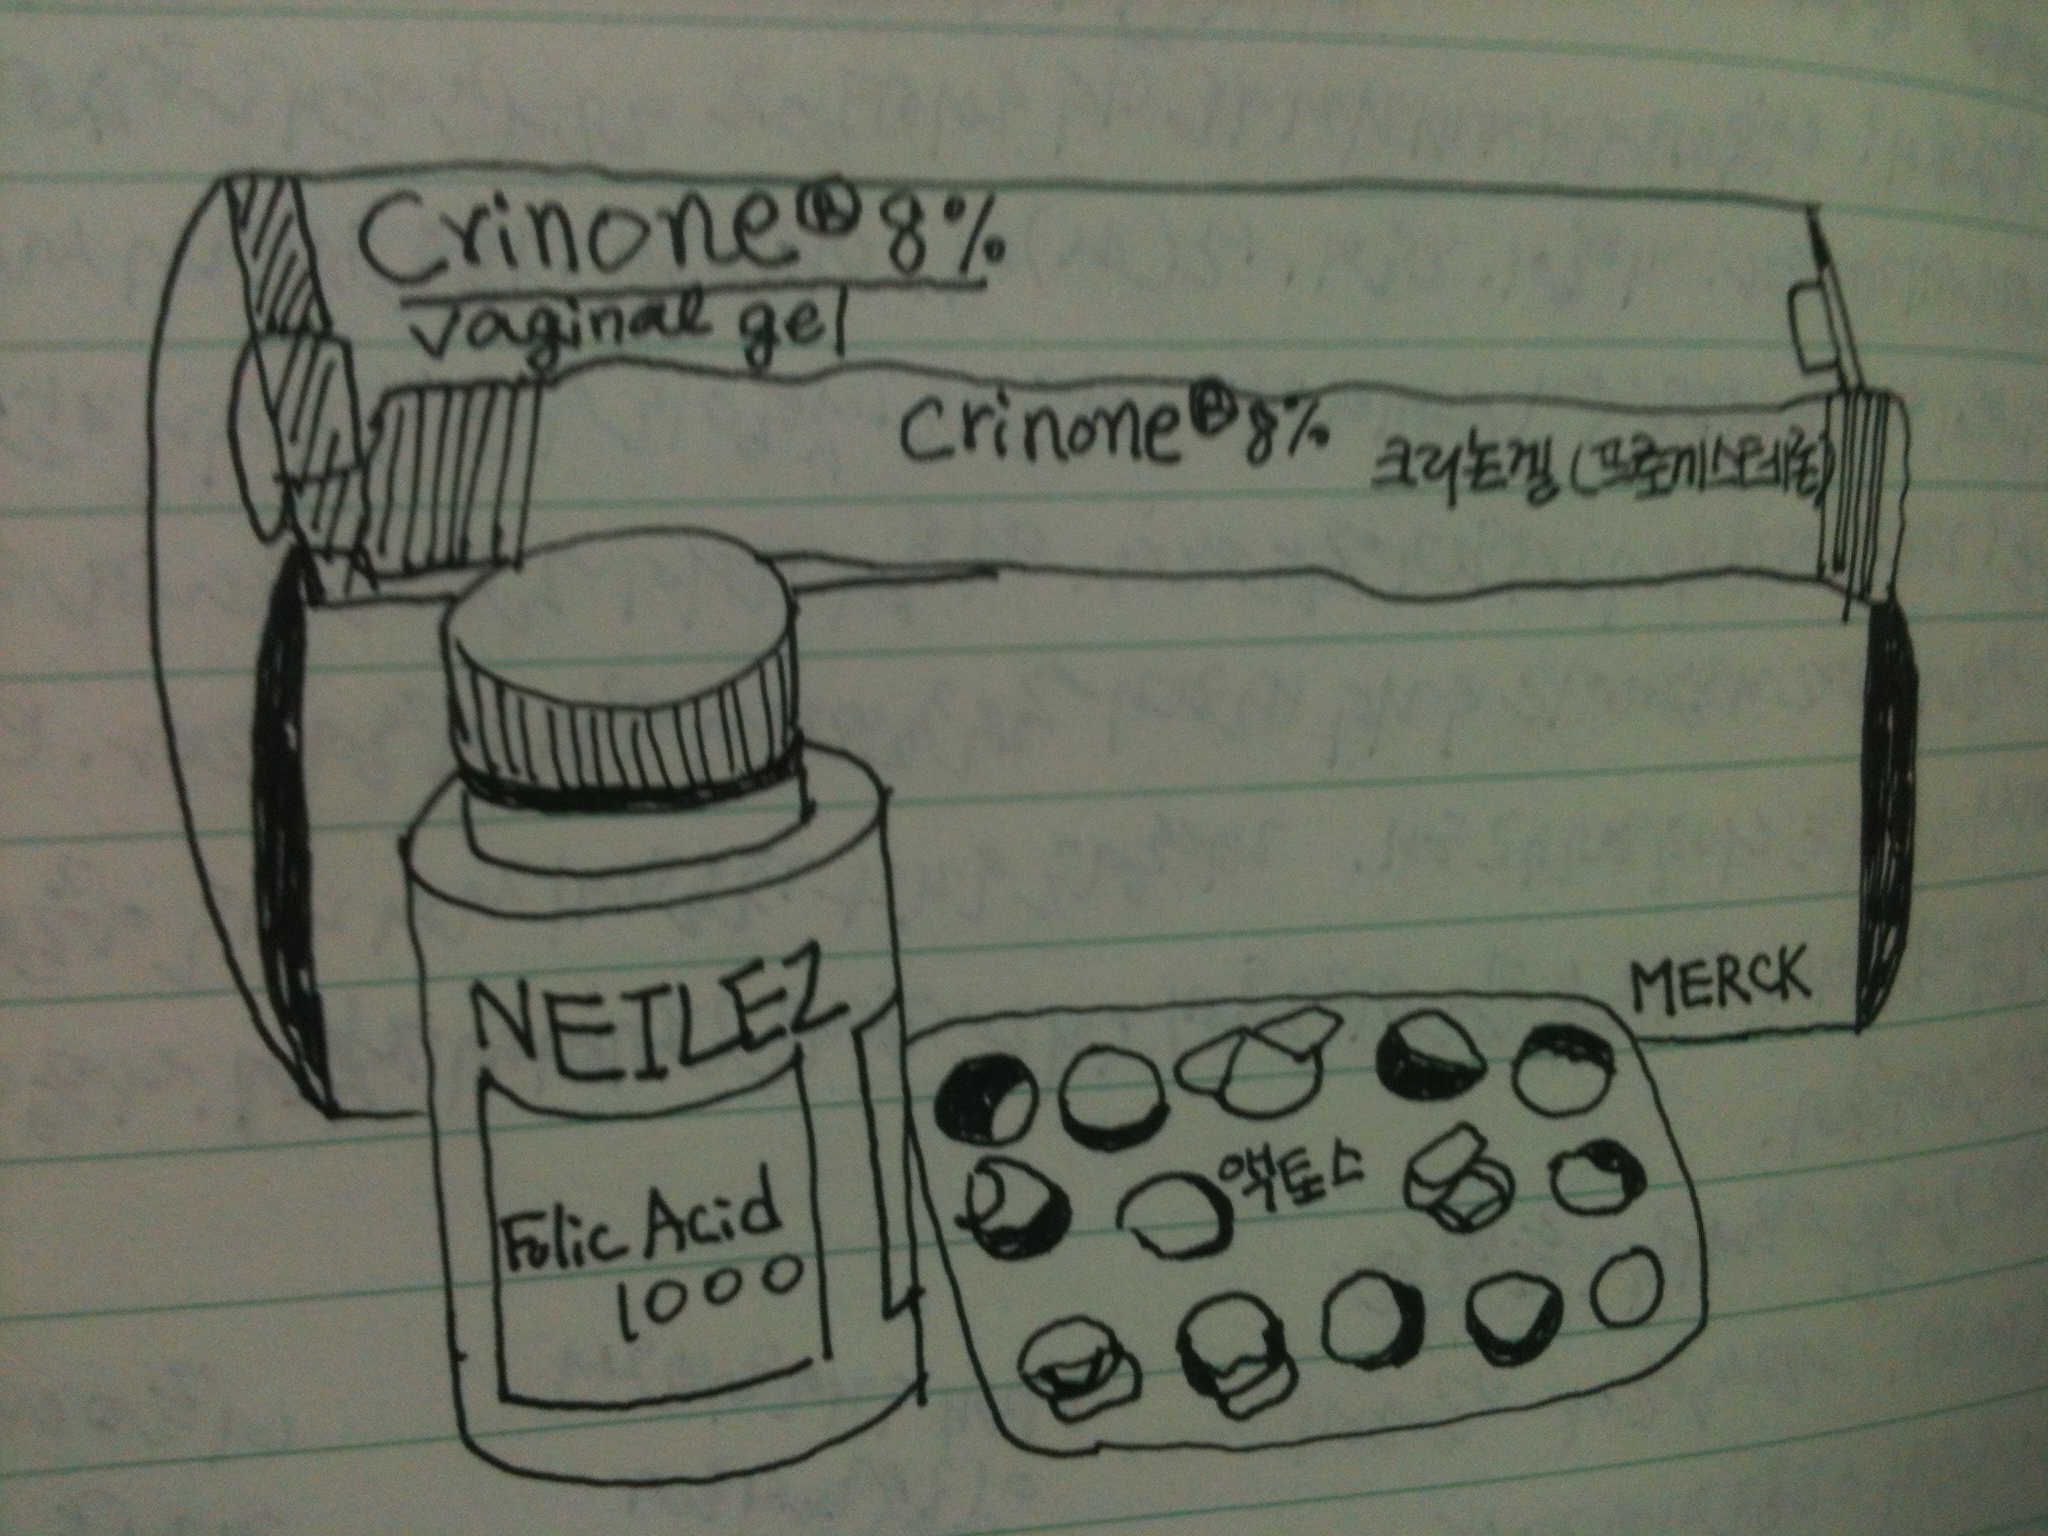 Crinone® 8%
Vaginal gel
Crinone® 8%
크리논겔 (프로게스테론)
NEILEZ
Folic Acid
1000
액토스
MERCK